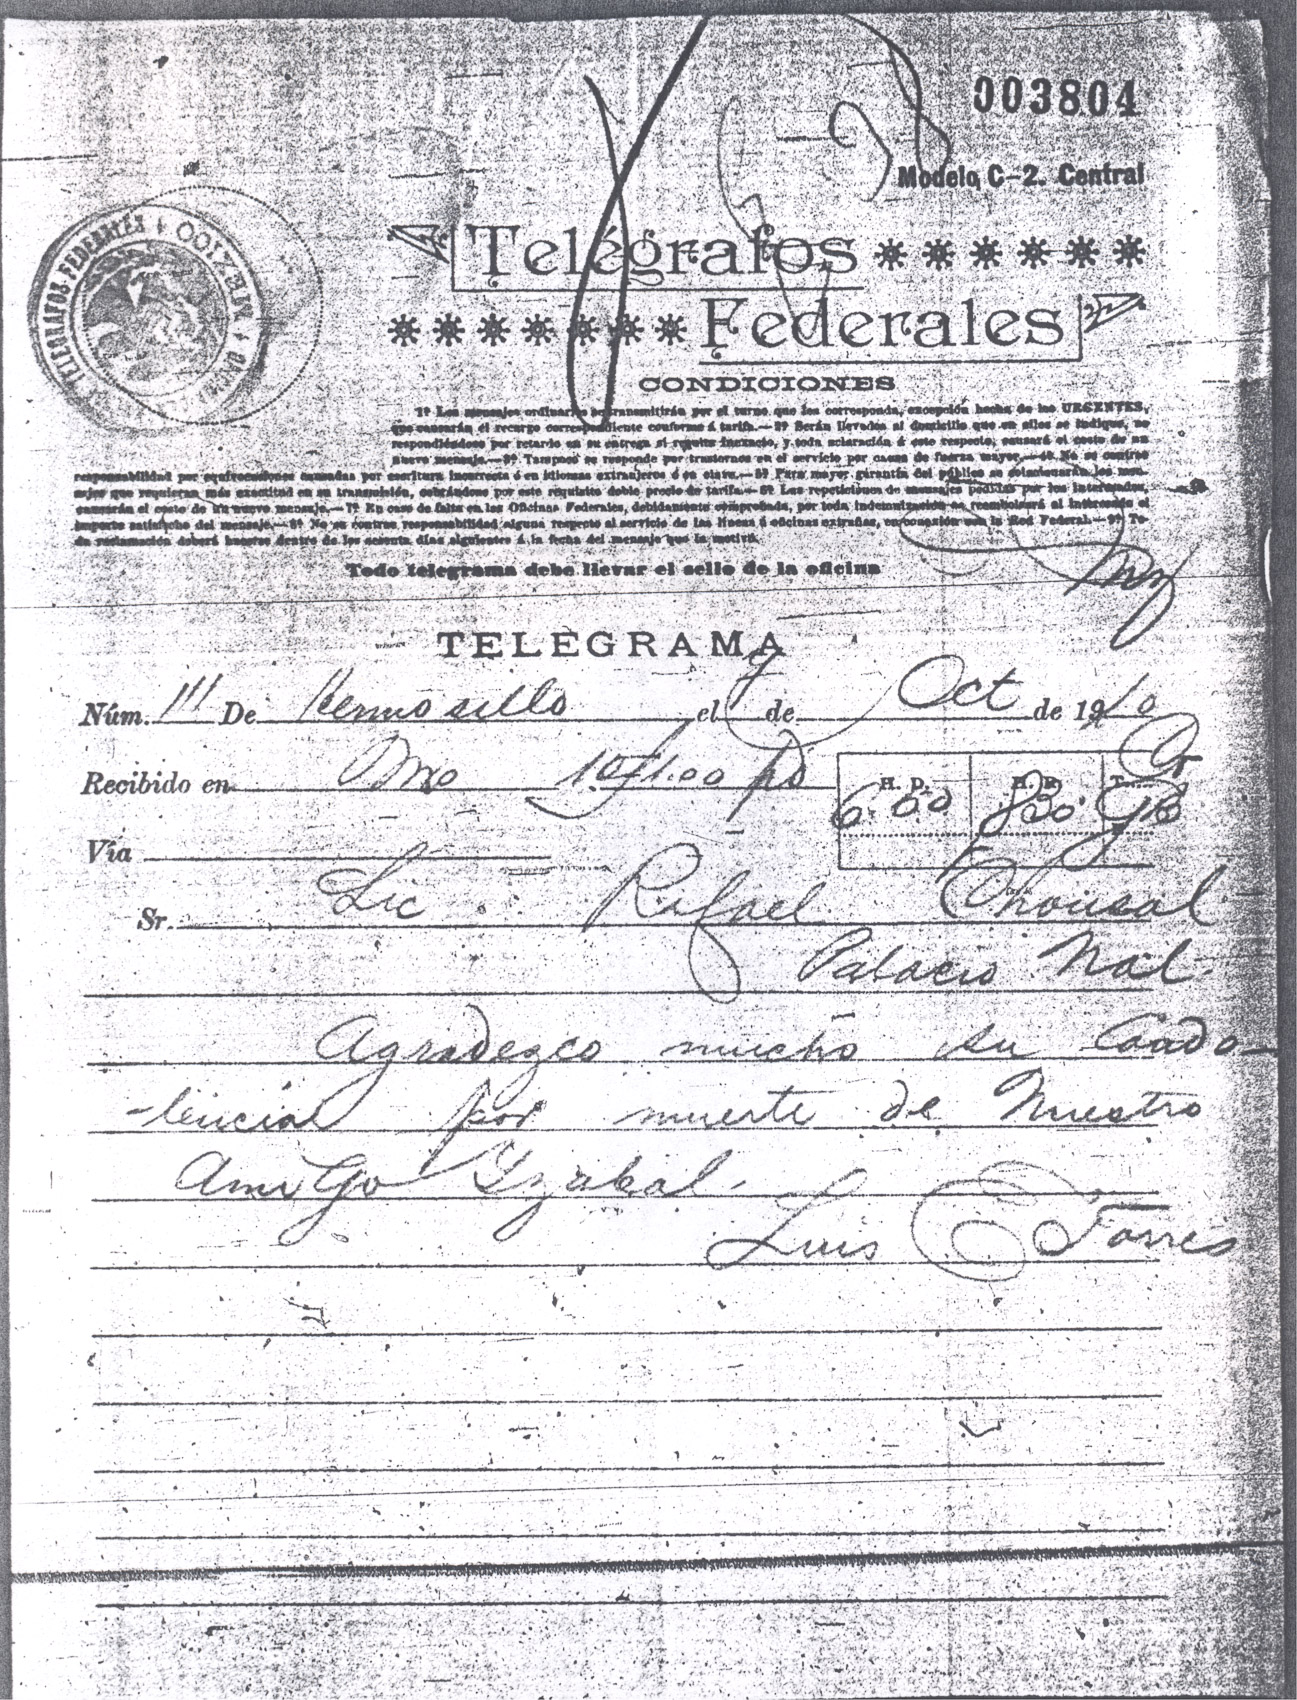 003804
Modelo C-2. Central
TELEGRAFOS FEDERALES
MEXICO
Telégrafos
Federales
CONDICIONES
1ª Los mensajes ordinarios se transmitirán por el turno que les corresponda, excepción hecha de los URGENTES,
que causarán el recargo correspondiente conforme á tarifa.—2ª Serán llevados al domicilio que en ellos se indique, no
respondiéndose por retardo en su entrega si resulta inexacto, y toda aclaración á este respecto, causará el costo de un
nuevo mensaje.—3ª Tampoco se responde por trastornos en el servicio por causa de fuerza mayor.—4ª No se contrae
responsabilidad por equivocaciones causadas por escritura incorrecta ó en idiomas extranjeros ó en clave.—5ª Para mayor garantía del público se colacionarán los men-
sajes que requieran más exactitud en su transmisión, cobrándose por este requisito doble precio de tarifa.—6ª Las repeticiones de mensajes pedidas por los interesados,
causarán el costo de un nuevo mensaje.—7ª En caso de falta en las Oficinas Federales, debidamente comprobada, por toda indemnización se reembolsará al interesado el
importe satisfecho del mensaje.—8ª No se contrae responsabilidad alguna respecto al servicio de las líneas ú oficinas extrañas, en conexión con la Red Federal.—9ª To-
da reclamación deberá hacerse dentro de los sesenta días siguientes á la fecha del mensaje que la motivó.
Todo telegrama debe llevar el sello de la oficina
TELEGRAMA
Núm. 111 De Hermosillo el de Oct de 1910
Recibido en Mxo
H. D.
6.00 830
Vía
Sr. Lic. Rafael Chousal
Palacio Nal.
Agradezco mucho su Condo-
-lencial por muerte de Nuestro
Amigo Yzabal.
Luis E Torres